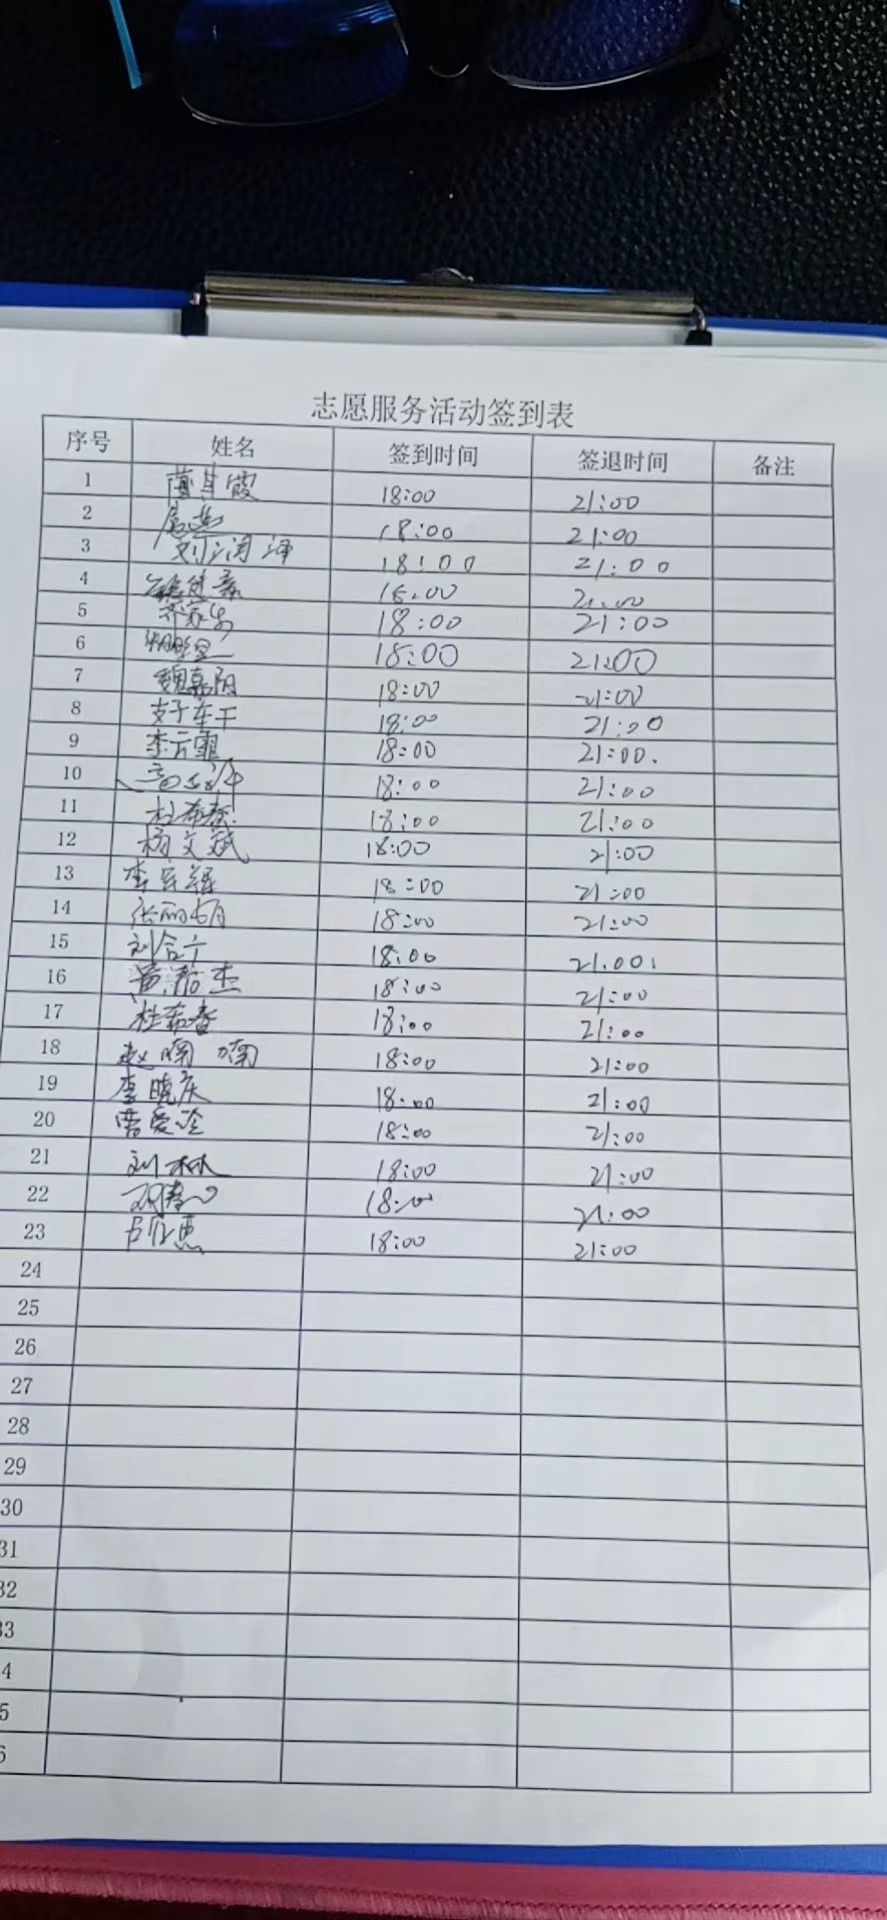 志愿服务活动签到表
序号 姓名 签到时间 签退时间 备注
1 18:00 21:00
2 18:00 21:00
3 刘润泽 18:00 21:00
4 21:00
5 18:00 21:00
6 18:00 21:00
7 魏嘉阳 18:00 21:00
8 18:00 21:00
9 李云霏 18:00 21:00.
10 18:00 21:00
11 杜希春 18:00 21:00
12 杨文斌 18:00 21:00
13 李 18:00 21:00
14 张丽 18:00 21:00
15 刘 18:00 21:00
16 黄 杰 18:00 21:00
17 杜希春 18:00 21:00
18 赵喃喃 18:00 21:00
19 李晓庆 18:00 21:00
20 曹爱玲 18:00 21:00
21 刘林 18:00 21:00
22 18:00 21:00
23 18:00 21:00
24
25
26
27
28
29
30
31
32
33
4
5
6